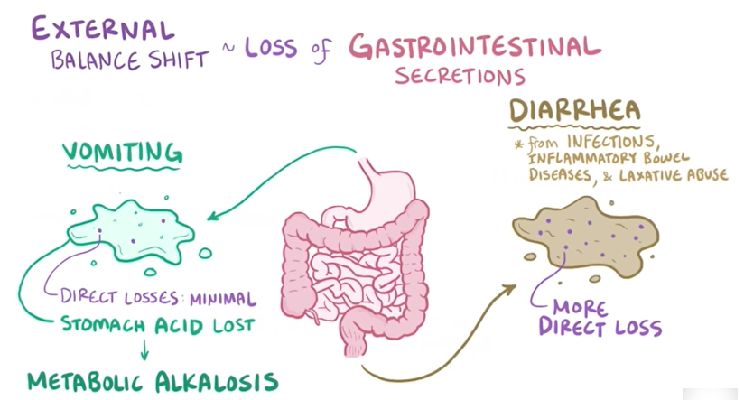 EXTERNAL
BALANCE SHIFT ~ LOSS of GASTROINTESTINAL
SECRETIONS
VOMITING
DIRECT LOSSES: MINIMAL
STOMACH ACID LOST
METABOLIC ALKALOSIS
DIARRHEA
* from INFECTIONS,
INFLAMMATORY BOWEL
DISEASES, & LAXATIVE ABUSE
MORE
DIRECT LOSS